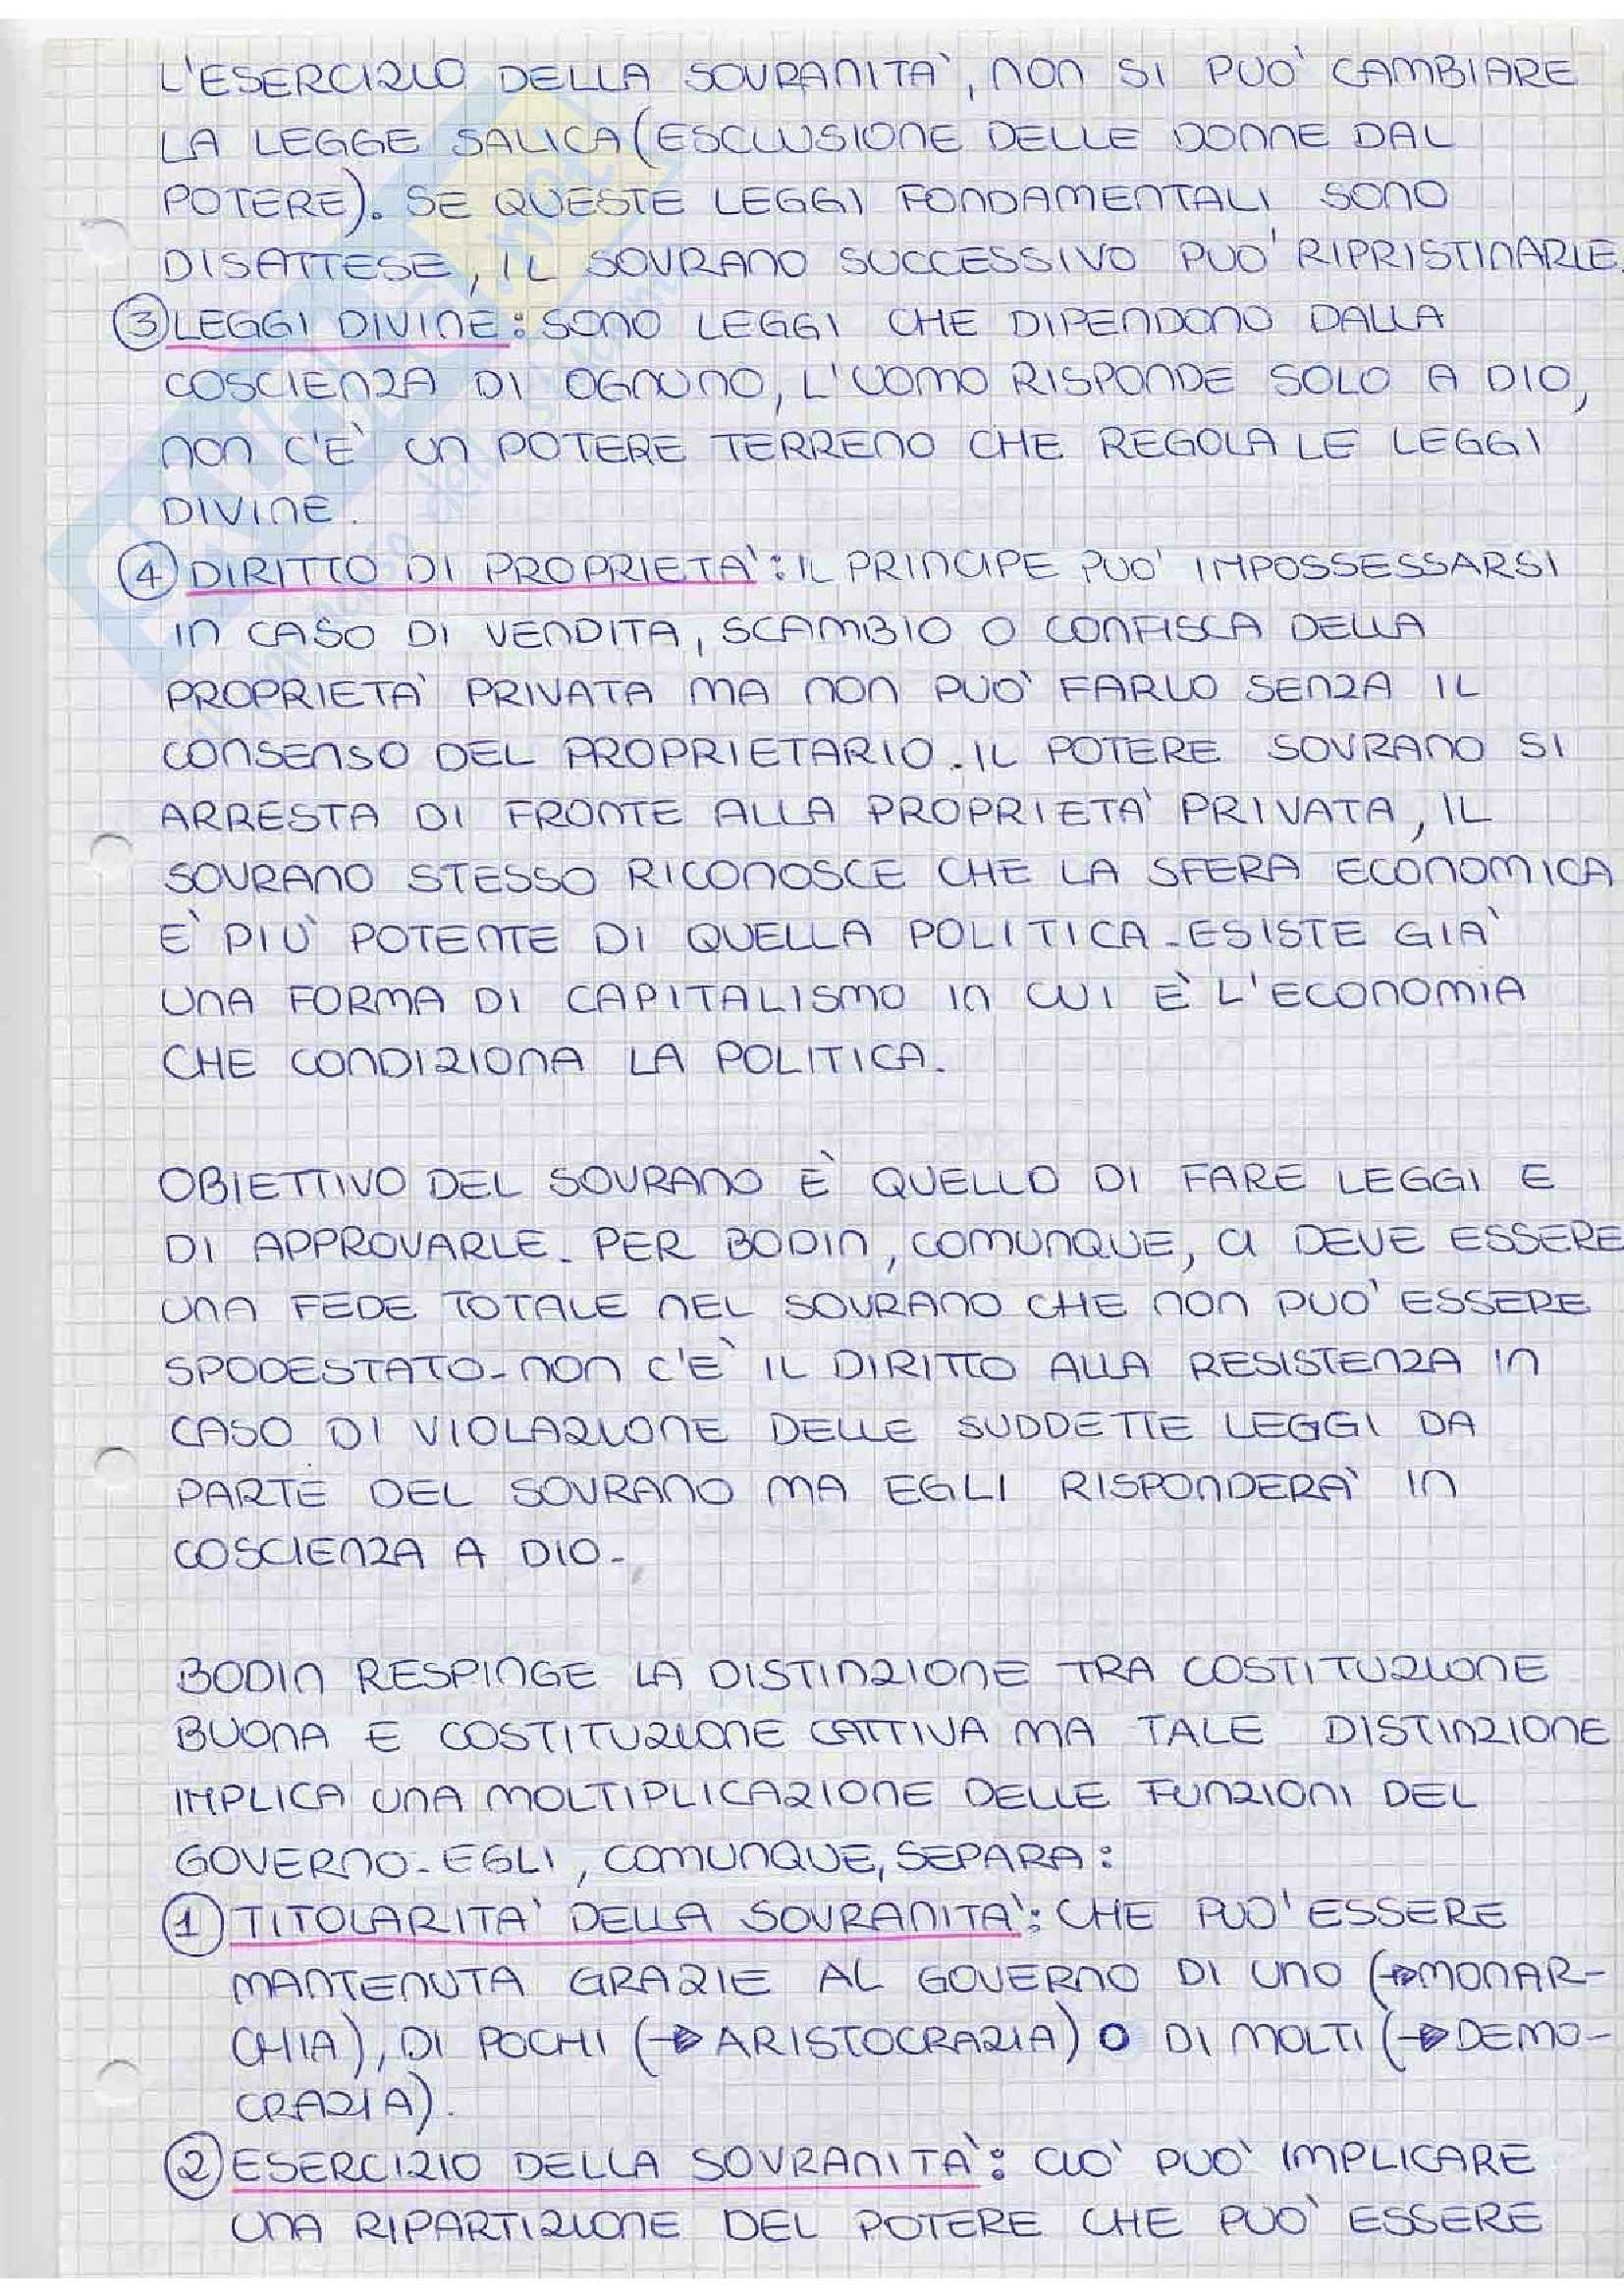 L'ESERCIZIO DELLA SOVRANITA', NON SI PUO' CAMBIARE
LA LEGGE SALICA (ESCLUSIONE DELLE DONNE DAL
POTERE). SE QUESTE LEGGI FONDAMENTALI SONO
DISATTESE, IL SOVRANO SUCCESSIVO PUO' RIPRISTINARLE.
③ LEGGI DIVINE: SONO LEGGI CHE DIPENDONO DALLA
COSCIENZA DI OGNUNO, L'UOMO RISPONDE SOLO A DIO,
NON C'E' UN POTERE TERRENO CHE REGOLA LE LEGGI
DIVINE.
④ DIRITTO DI PROPRIETA': IL PRINCIPE PUO' IMPOSSESSARSI
IN CASO DI VENDITA, SCAMBIO O CONFISCA DELLA
PROPRIETA' PRIVATA MA NON PUO' FARLO SENZA IL
CONSENSO DEL PROPRIETARIO. IL POTERE SOVRANO SI
ARRESTA DI FRONTE ALLA PROPRIETA' PRIVATA, IL
SOVRANO STESSO RICONOSCE CHE LA SFERA ECONOMICA
E' PIU' POTENTE DI QUELLA POLITICA. ESISTE GIA'
UNA FORMA DI CAPITALISMO IN CUI E' L'ECONOMIA
CHE CONDIZIONA LA POLITICA.
OBIETTIVO DEL SOVRANO E' QUELLO DI FARE LEGGI E
DI APPROVARLE. PER BODIN, COMUNQUE, CI DEVE ESSERE
UNA FEDE TOTALE NEL SOVRANO CHE NON PUO' ESSERE
SPODESTATO. NON C'E' IL DIRITTO ALLA RESISTENZA IN
CASO DI VIOLAZIONE DELLE SUDDETTE LEGGI DA
PARTE DEL SOVRANO MA EGLI RISPONDERA' IN
COSCIENZA A DIO.
BODIN RESPINGE LA DISTINZIONE TRA COSTITUZIONE
BUONA E COSTITUZIONE CATTIVA MA TALE DISTINZIONE
IMPLICA UNA MOLTIPLICAZIONE DELLE FUNZIONI DEL
GOVERNO. EGLI, COMUNQUE, SEPARA:
① TITOLARITA' DELLA SOVRANITA': CHE PUO' ESSERE
MANTENUTA GRAZIE AL GOVERNO DI UNO (→MONAR-
CHIA), DI POCHI (→ ARISTOCRAZIA) O DI MOLTI (→DEMO-
CRAZIA).
② ESERCIZIO DELLA SOVRANITA': CIO' PUO' IMPLICARE
UNA RIPARTIZIONE DEL POTERE CHE PUO' ESSERE